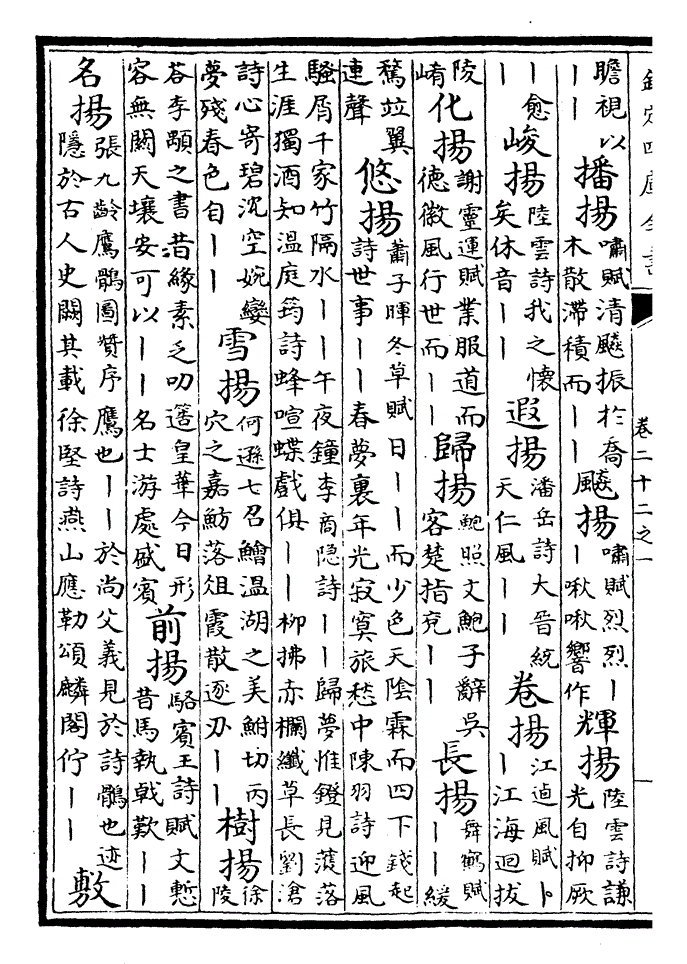 欽定四庫全書
卷二十二之一
瞻視以
——
播揚
嘯賦清飈振於喬
木散滯積而——
飈揚
嘯賦烈烈—
—啾啾響作
輝揚
陸雲詩謙
光自抑厥
—愈
—
峻揚
陸雲詩我之懷
矣休音——
遐揚
潘岳詩大晉統
天仁風——
卷揚
江逌風賦卜
—江海迴拔
陵
崤
化揚
謝靈運賦業服道而
德徽風行世而——
歸揚
鮑照文鮑子辭吳
客楚指兖——
長揚
舞鶴賦
——緩
騖竝翼
連聲
悠揚
蕭子暉冬草賦日——而少色天陰霖而四下錢起
詩世事——春夢裏年光寂寞旅愁中陳羽詩迎風
騷屑千家竹隔水——午夜鐘李商隱詩——歸夢惟鐙見濩落
生涯獨酒知溫庭筠詩蜂喧蝶戲俱——柳拂赤欄纖草長劉滄
詩心寄碧沈空婉孌
夢殘春色自——
雪揚
何遜七召鱠溫湖之美鮒切丙
穴之嘉魴落俎霞散逐刃——
樹揚
徐
陵
荅李顒之書昔緣素乏叨簉皇華今日形
容無闕天壤安可以——名士游處盛賓
前揚
駱賓王詩賦文慙
昔馬執戟歎——
名揚
張九齡鷹鶻圖贊序鷹也——於尚父義見於詩鶻也迹
隱於古人史闕其載徐堅詩燕山應勒頌麟閣佇——
敷